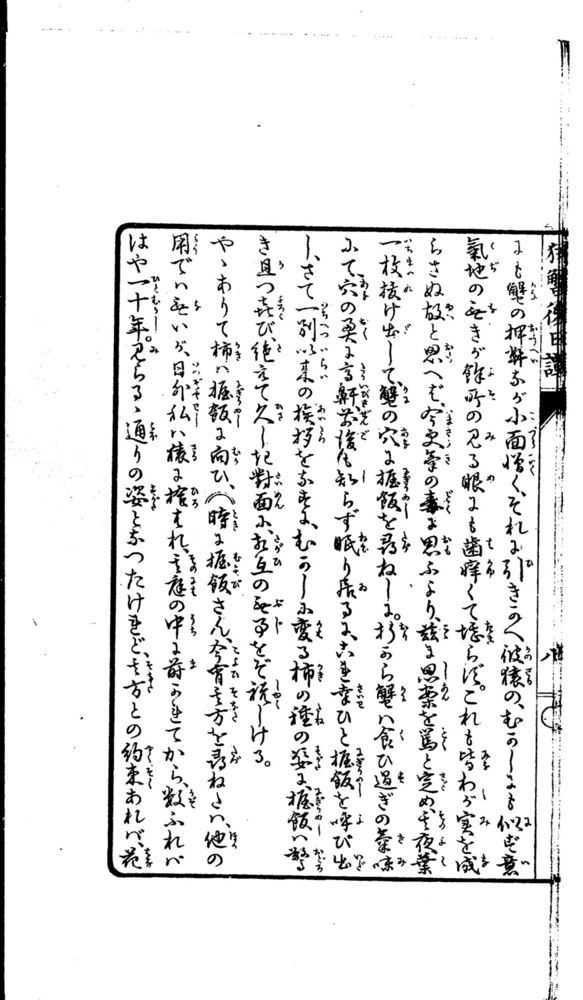 猿蟹後日譚　八
にも蟹の押柄なが小面憎く、それに引きかへ彼猿の、むかしにも似ず意
氣地の無きが餘所の見る眼にも歯痒くて堪らず。これも皆わが実を成
らさぬ故と思へば、今更氣の毒に思ふより、茲に思案を篤と定め其夜葉
一枚抜け出して、蟹の穴に握飯を尋ねしに。折から蟹ハ食ひ過ぎの氣味
にて穴の奥に高鼾前後も知らず眠り居るに、これ幸ひと握飯を呼び出
し、さて一別以来の挨拶をなすに、むかしに変る柿の種の姿に握飯ハ驚
き且つ喜び、絶えて久しき對面に、お互の無事をぞ祝しける。
やゝありて柿ハ握飯に向ひ、(時に握飯さん、今宵其方を尋ねたハ、他の
用でハ無いが、日外私ハ猿に捨はれ、其庭の中に蒔かれてから、数ふれバ
はや一十年。見らるゝ通りの姿となつたけれど、其方との約束あれバ、花